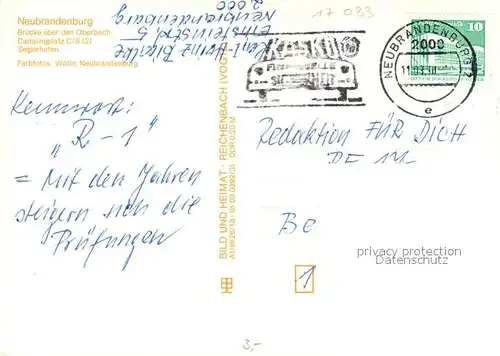 Neubrandenburg
Brücke über den Oberbach
Campingplatz C/8 (2)
Seglerhafen
Farbfotos: Wotin, Neubrandenburg
Karl-Heinz
Einsteinstr. 5
Neubrandenburg
2000
17 033
KASKO
NEUBRANDENBURG 2
2000
e
10
Kennwort:
„R-1"
= Mit den Jahren
steigern sich die
Prüfungen
BILD UND HEIMAT · REICHENBACH (VOGTL)
Redaktion FÜR DICH
Be
privacy protection
Datenschutz
1
3,-